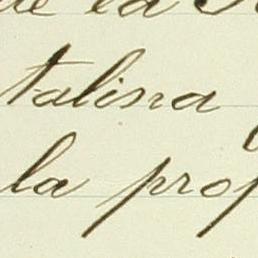 de la
talina
la prop